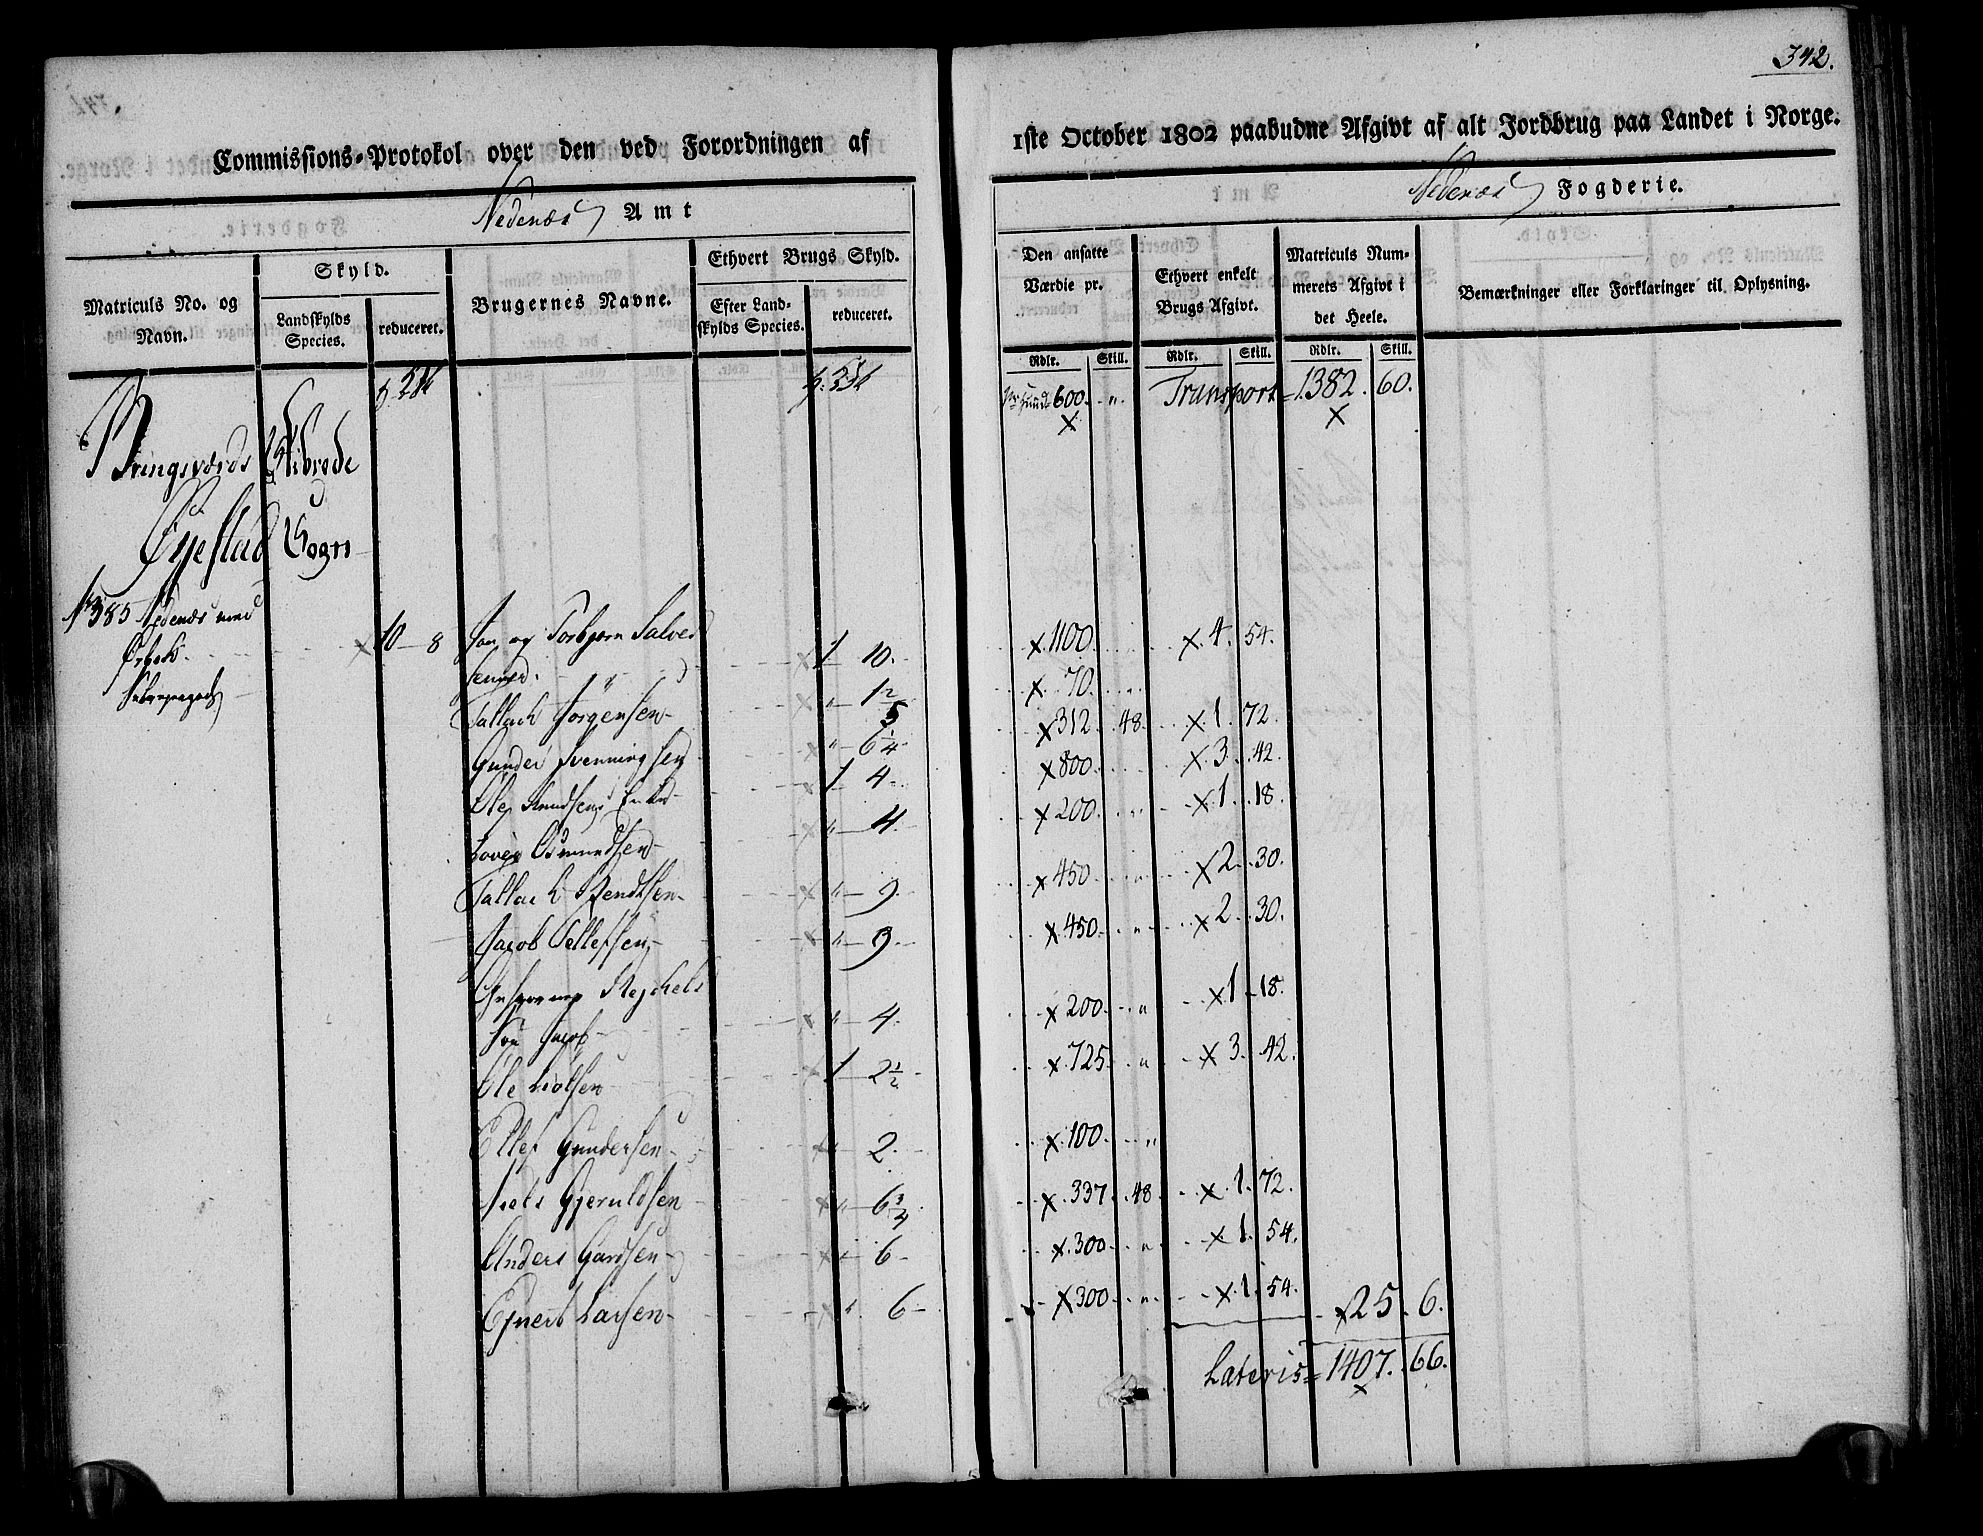 342.
Commissions-Protokol over den ved Forordningen af
1ste October 1802 paabudne Afgivt af alt Jordbrug paa Landet i Norge.
Nedenæs Amt
Nedenæs Fogderie.
Matriculs No. og Navn.
Skyld.
Landskylds Species.
reduceret.
Brugernes Navne.
Ethvert Brugs Skyld.
Efter Landskylds Species.
reduceret.
Den ansatte Værdie pr.
Ethvert enkelt Brugs Afgivt.
Matriculs Nummerets Afgivt i det Heele.
Bemærkninger eller Forklaringer til Oplysning.
Rdlr. Skill. Rdlr. Skill. Rdlr. Skill.
600. Transport 1382. 60.
Skibrede
Øyestad Sogn
No 385 Nedenæs med
10 - 8 Jon og Torbjørn Salves
1 10. 1100. 4. 54.
70.
Tallach Jørgensen 312. 48. 1. 72.
Gunder Svenningsen 800. 3. 42.
1 4.
Ole Knudsens Enke 200. 1. 18.
4.
Osmundsen
Tallach Bendtsen 9. 450. 2. 30.
Jacob Tellefsen 9. 450. 2. 30.
4. 200. 1. 18.
Ole Holsen 1 2 1/2 725. 3. 42.
Ellef Gundersen 2. 100.
Niels Gjeruldsen 6 3/4 337. 48. 1. 72.
Anders 6 300. 1. 54.
Larsen 6 300. 1. 54.
25. 6.
Lateris 1407. 66.